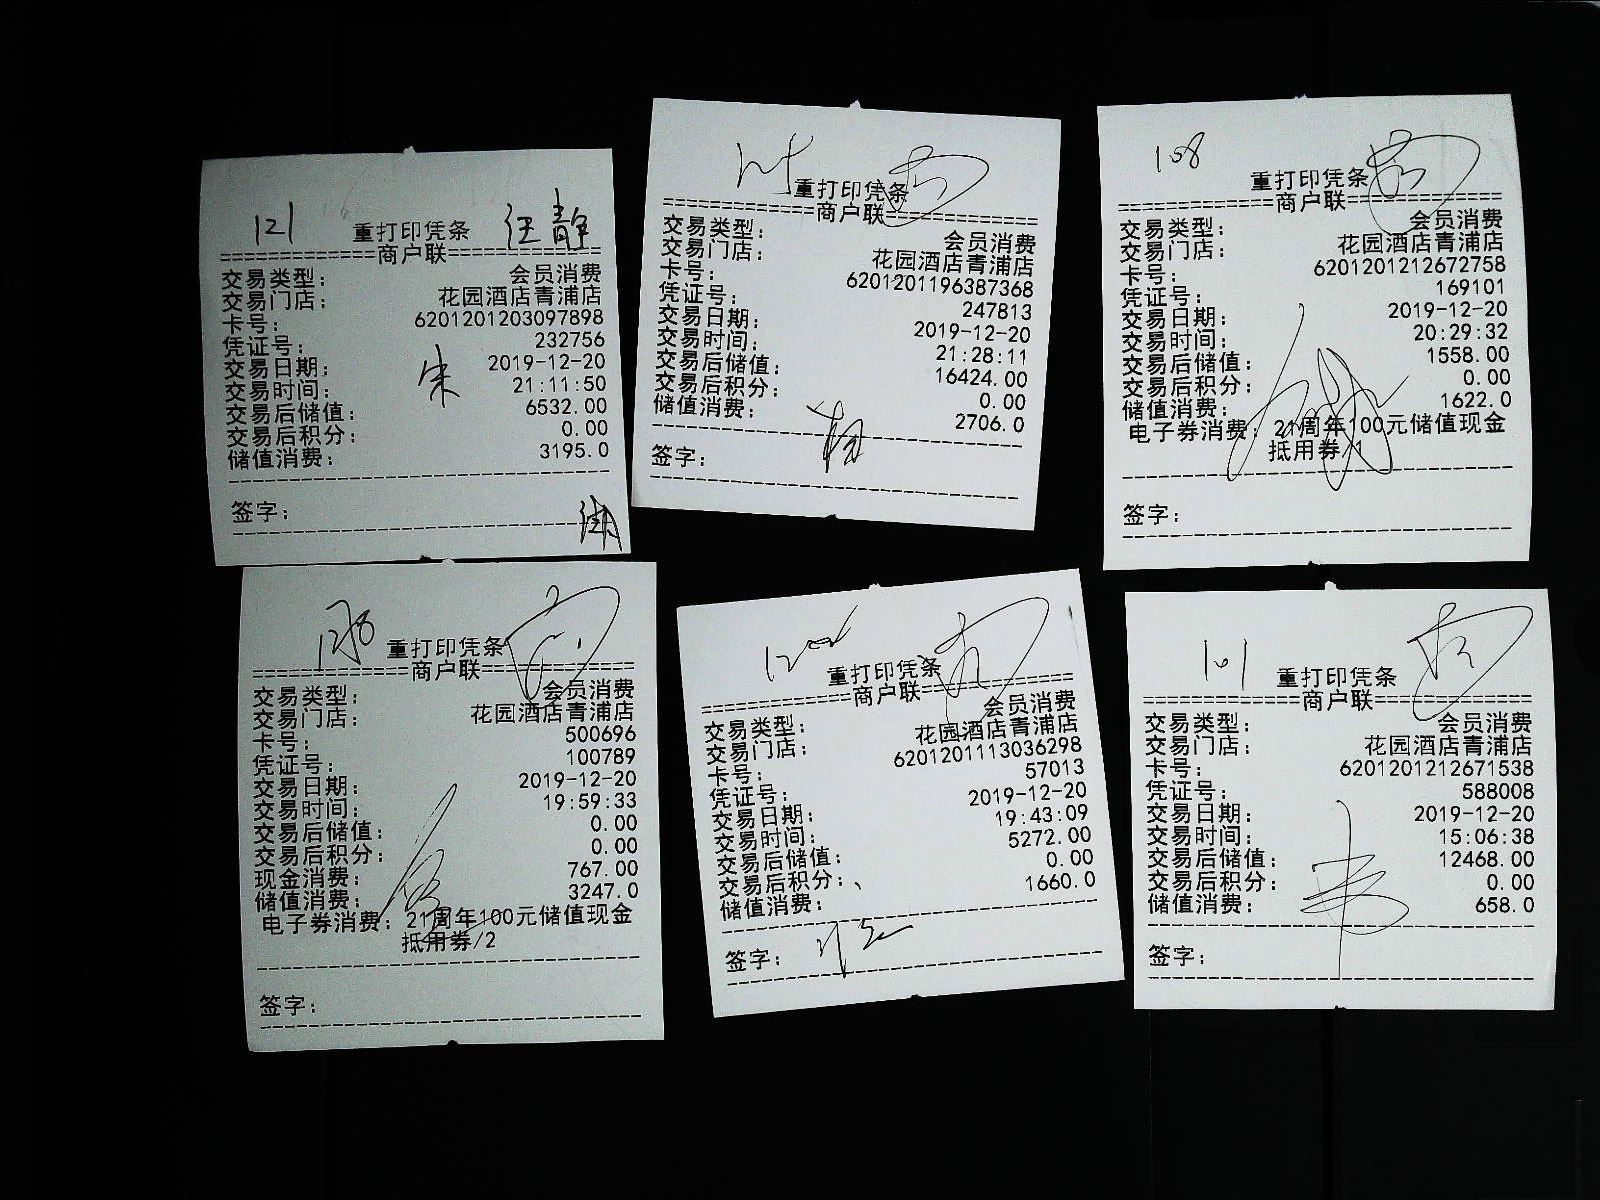 121
重打印凭条
汪静
============商户联============
交易类型： 会员消费
交易门店： 花园酒店青浦店
卡号： 6201201203097898
凭证号： 232756
交易日期： 2019-12-20
交易时间： 21:11:50
交易后储值： 6532.00
交易后积分： 0.00
储值消费： 3195.0
宋
签字：
重打印凭条
============商户联============
交易类型： 会员消费
交易门店： 花园酒店青浦店
卡号： 6201201196387368
凭证号： 247813
交易日期： 2019-12-20
交易时间： 21:28:11
交易后储值： 16424.00
交易后积分： 0.00
储值消费： 2706.0
签字：
108
重打印凭条
============商户联============
交易类型： 会员消费
交易门店： 花园酒店青浦店
卡号： 6201201212672758
凭证号： 169101
交易日期： 2019-12-20
交易时间： 20:29:32
交易后储值： 1558.00
交易后积分： 0.00
储值消费： 1622.0
电子券消费：21周年100元储值现金
抵用券/1
签字：
重打印凭条
============商户联============
交易类型： 会员消费
交易门店： 花园酒店青浦店
卡号： 500696
凭证号： 100789
交易日期： 2019-12-20
交易时间： 19:59:33
交易后储值： 0.00
交易后积分： 0.00
现金消费： 767.00
储值消费： 3247.0
电子券消费：21周年100元储值现金
抵用券/2
签字：
重打印凭条
============商户联============
交易类型： 会员消费
交易门店： 花园酒店青浦店
卡号： 6201201113036298
凭证号： 57013
交易日期： 2019-12-20
交易时间： 19:43:09
交易后储值： 5272.00
交易后积分： 0.00
储值消费： 1660.0
签字：
101
重打印凭条
============商户联============
交易类型： 会员消费
交易门店： 花园酒店青浦店
卡号： 6201201212671538
凭证号： 588008
交易日期： 2019-12-20
交易时间： 15:06:38
交易后储值： 12468.00
交易后积分： 0.00
储值消费： 658.0
签字：